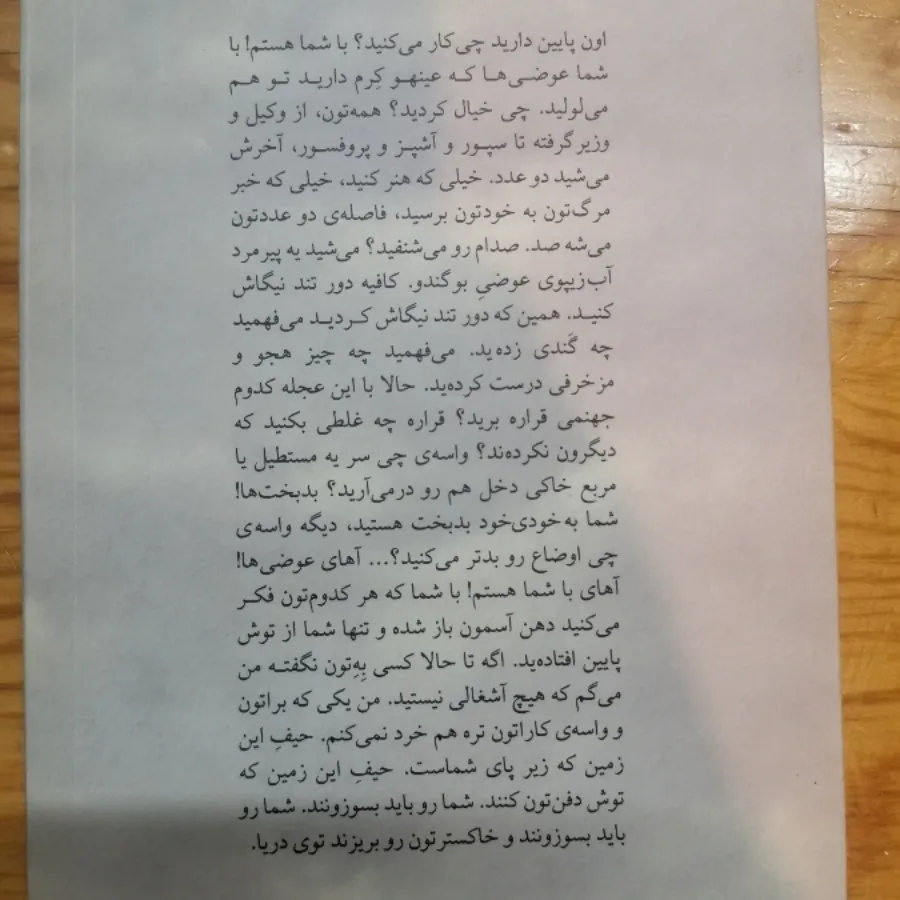 اون پایین دارید چی‌کار می‌کنید؟ با شما هستم! با
شما عوضی‌ها که عینهو کِرم دارید تو هم
می‌لولید. چی خیال کردید؟ همه‌تون، از وکیل و
وزیر گرفته تا سپور و آشپز و پروفسور، آخرش
می‌شید دو عدد. خیلی که هنر کنید، خیلی که خبر
مرگ‌تون به خودتون برسید، فاصله‌ی دو عددتون
می‌شه صد. صدام رو می‌شنفید؟ می‌شید یه پیرمرد
آب‌زیپوی عوضیِ بوگندو. کافیه دور تند نیگاش
کنیـد. همین که دور تند نیگاش کردید می‌فهمید
چه گَندی زده‌ید. می‌فهمید چه چیز هجو و
مزخرفی درست کرده‌ید. حالا با این عجله کدوم
جهنمی قراره برید؟ قراره چه غلطی بکنید که
دیگرون نکرده‌ند؟ واسه‌ی چی سر یه مستطیل یا
مربع خاکی دخل هم رو درمی‌آرید؟ بدبخت‌ها!
شما به‌خودی‌خود بدبخت هستید، دیگه واسه‌ی
چی اوضاع رو بدتر می‌کنید؟... آهای عوضی‌ها!
آهای با شما هستم! با شما که هر کدوم‌تون فکر
می‌کنید دهن آسمون باز شده و تنها شما از توش
پایین افتاده‌ید. اگه تا حالا کسی بِهِ‌تون نگفته من
می‌گم که هیچ آشغالی نیستید. من یکی که براتون
و واسه‌ی کاراتون تره هم خرد نمی‌کنم. حیفِ این
زمین که زیر پای شماست. حیفِ این زمین که
توش دفن‌تون کنند. شما رو باید بسوزونند. شما رو
باید بسوزونند و خاکسترتون رو بریزند توی دریا.